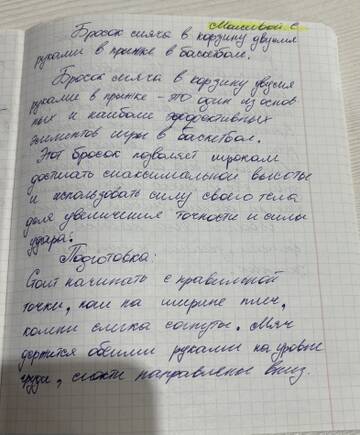 Маслвой. С
Бросок мяча в корзину двумя
руками в прыжке в баскетболе.
Бросок мяча в корзину двумя
руками в прыжке - это один из основ
ных и наиболе эффективных
элементов игры в баскетбол.
Этот бросок позволяет игрокам
достигать максимальной высоты
и использовать силу своего тела
для увеличения точности и силы
удара.
Подготовка:
Стоит начинать с правильной
точки, ноги на ширине плеч,
колени слегка согнуты. Мяч
держится обеими руками на уровне
груди, локти направлены вниз.